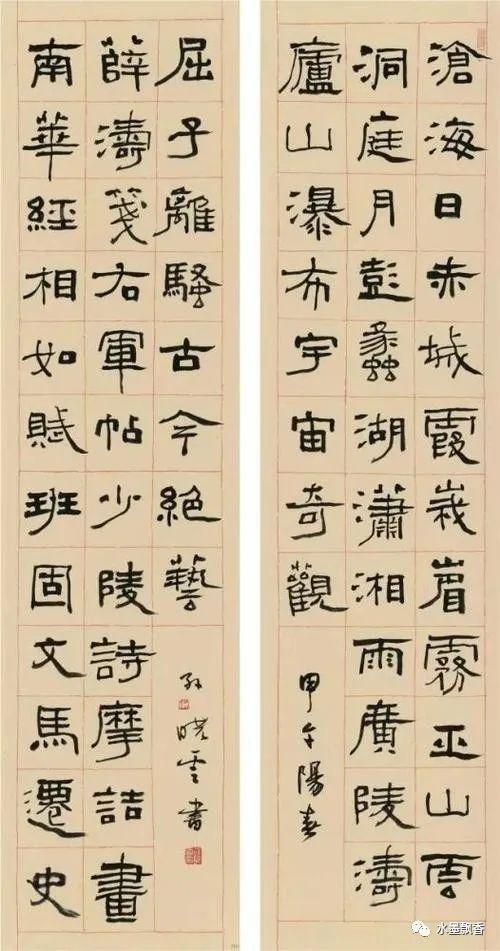 滄海日赤城霞峩眉霧巫山雲
洞庭月彭蠡湖瀟湘雨廣陵濤
廬山瀑布宇宙奇觀
甲午陽春
南華經相如賦班固文馬遷史
薛濤箋右軍帖少陵詩摩詰畫
屈子離騷古今絕藝
孫曉雲書
水墨飘香